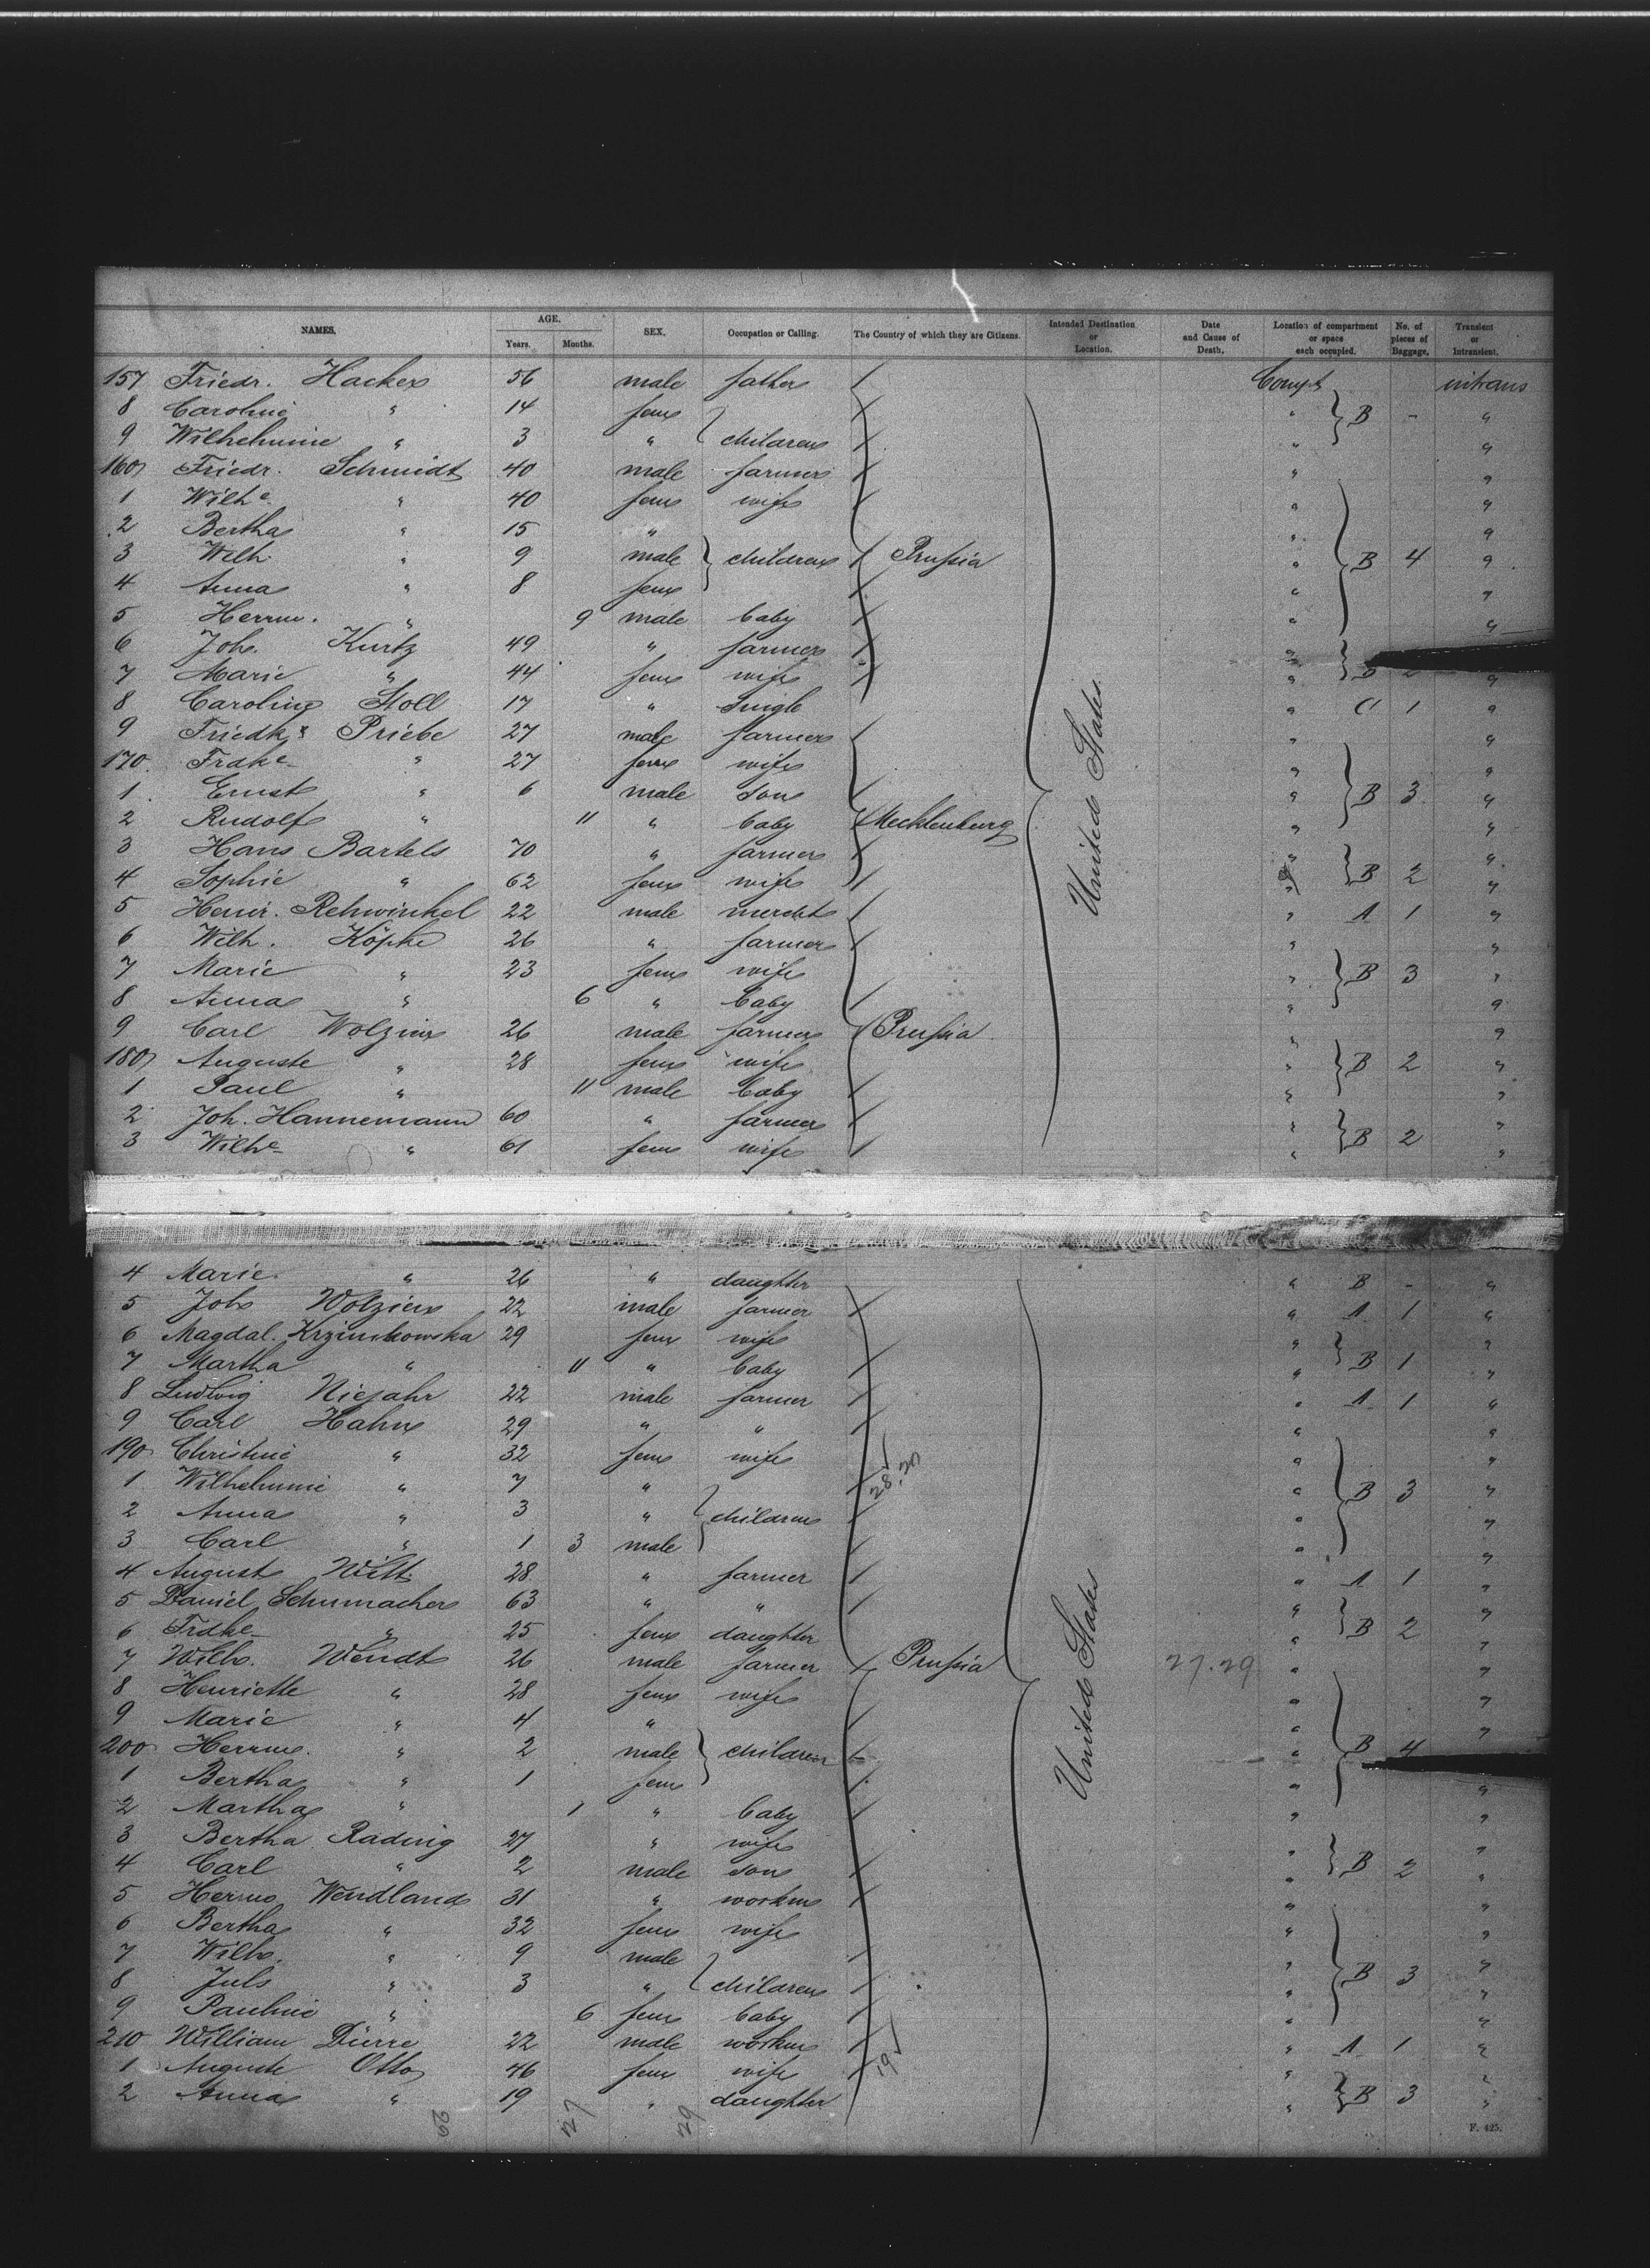 NAMES. AGE. Years. Months. SEX. Occupation or Calling. The Country of which they are Citizens. Intended Destination or Location. Date and Cause of Death. Location of compartment or space each occupied. No. of pieces of Baggage. Transient or Intransient.
157 Friedr. Hacker 56 male father / Compt intrans
8 Caroline " 14 fem / " B - "
9 Wilhelmine " 3 " children / " "
160 Friedr. Schmidt 40 male farmer / " "
1 Wilhe " 40 fem wife / " "
2 Bertha " 15 " " "
3 Wilh " 9 male children / Prussia " B 4 "
4 Anna " 8 fem / " "
5 Herrm. " 9 male baby / " "
6 Joh. Kurtz 49 " farmer / "
7 Marie " 44 fem wife / " "
8 Caroline Stoll 17 " single " C 1 "
9 Friedk Priebe 27 male farmer / " "
170 Fradke " 27 fem wife " "
1 Ernst " 6 male son / " B 3 "
2 Rudolf " 11 " baby / Mecklenburg " "
3 Hans Bartels 70 " farmer / " "
4 Sophie " 62 fem wife / " B 2 "
5 Heinr. Rehwinkel 22 male mercht / " A 1 "
6 Wilh. Köpke 26 " farmer / " "
7 Marie " 23 fem wife " B 3 "
8 Anna " 6 " baby / " "
9 Carl Wolzien 26 male farmer / Prussia " "
180 Auguste " 28 fem wife " B 2 "
1 Paul " 11 male baby / " "
2 Joh. Hannemann 60 " farmer / " "
3 Wilhe " 61 fem wife / " B 2 "
United States
4 Marie " 26 " daughter " B - "
5 Joh Wolzien 22 male farmer / " A 1 "
6 Magdal. Krzimkowska 29 fem wife " "
7 Martha " 11 " baby / " B 1 "
8 Ludwig Niejahr 22 male farmer / " A 1 "
9 Carl Hahn 29 " " / " "
190 Christine " 32 fem wife " "
1 Wilhelmine " 7 " / " B 3 "
2 Anna " 3 " children / " "
3 Carl " 1 3 male / " "
4 August Witt 28 " farmer / " A 1 "
5 Daniel Schumacher 63 " " / " "
6 Frdke " 25 fem daughter " B 2 "
7 Wilh. Wendt 26 male farmer / Prussia 27.29 " "
8 Henriette " 28 fem wife " "
9 Marie " 4 " / " "
200 Herrm. " 2 male children " B 4
1 Bertha " 1 fem / " "
2 Martha " 1 " baby / " "
3 Bertha Rading 27 " wife " "
4 Carl " 2 male son / " B 2 "
5 Herrm Wendland 31 " workm / " "
6 Bertha " 32 fem wife " "
7 Wilh. " 9 male / " "
8 Juls " 3 " children / " B 3 "
9 Pauline " 6 fem baby / " "
210 William Dierre 22 male workm / " A 1 "
1 Auguste Otto 46 fem wife / " "
2 Anna " 19 " daughter " B 3 "
United States
28.20
19
27
29
F. 425.